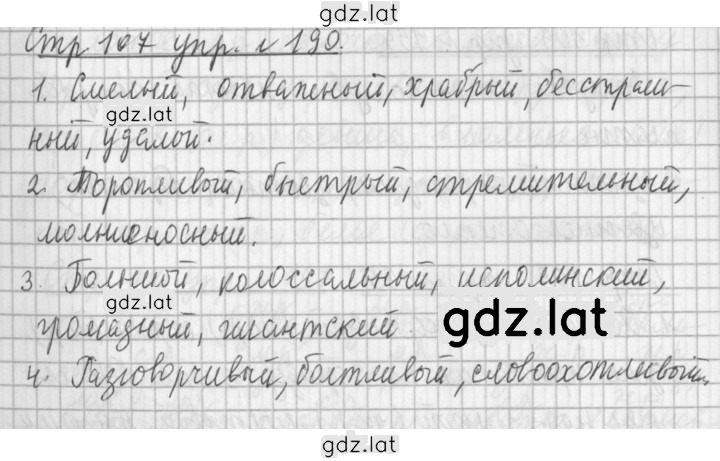 gdz.lat
Стр 107 упр. № 190.
1. Смелый, отважный, храбрый, бесстраш-
gdz.lat
ный, удалой.
2. Торопливый, быстрый, стремительный,
молниеносный.
3. Большой, колоссальный, исполинский,
gdz.lat
громадный, гигантский.
gdz.lat
4. Разговорчивый, болтливый, словоохотливый.
gdz.lat